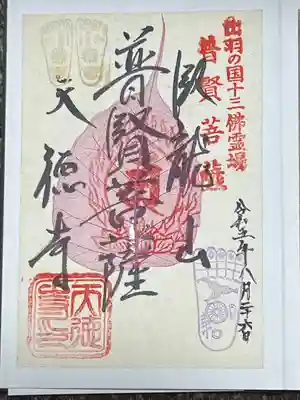 出羽の国十三佛霊場
普賢菩薩
令和五年八月二十六日
臥龍山
普賢菩薩
天徳寺
和